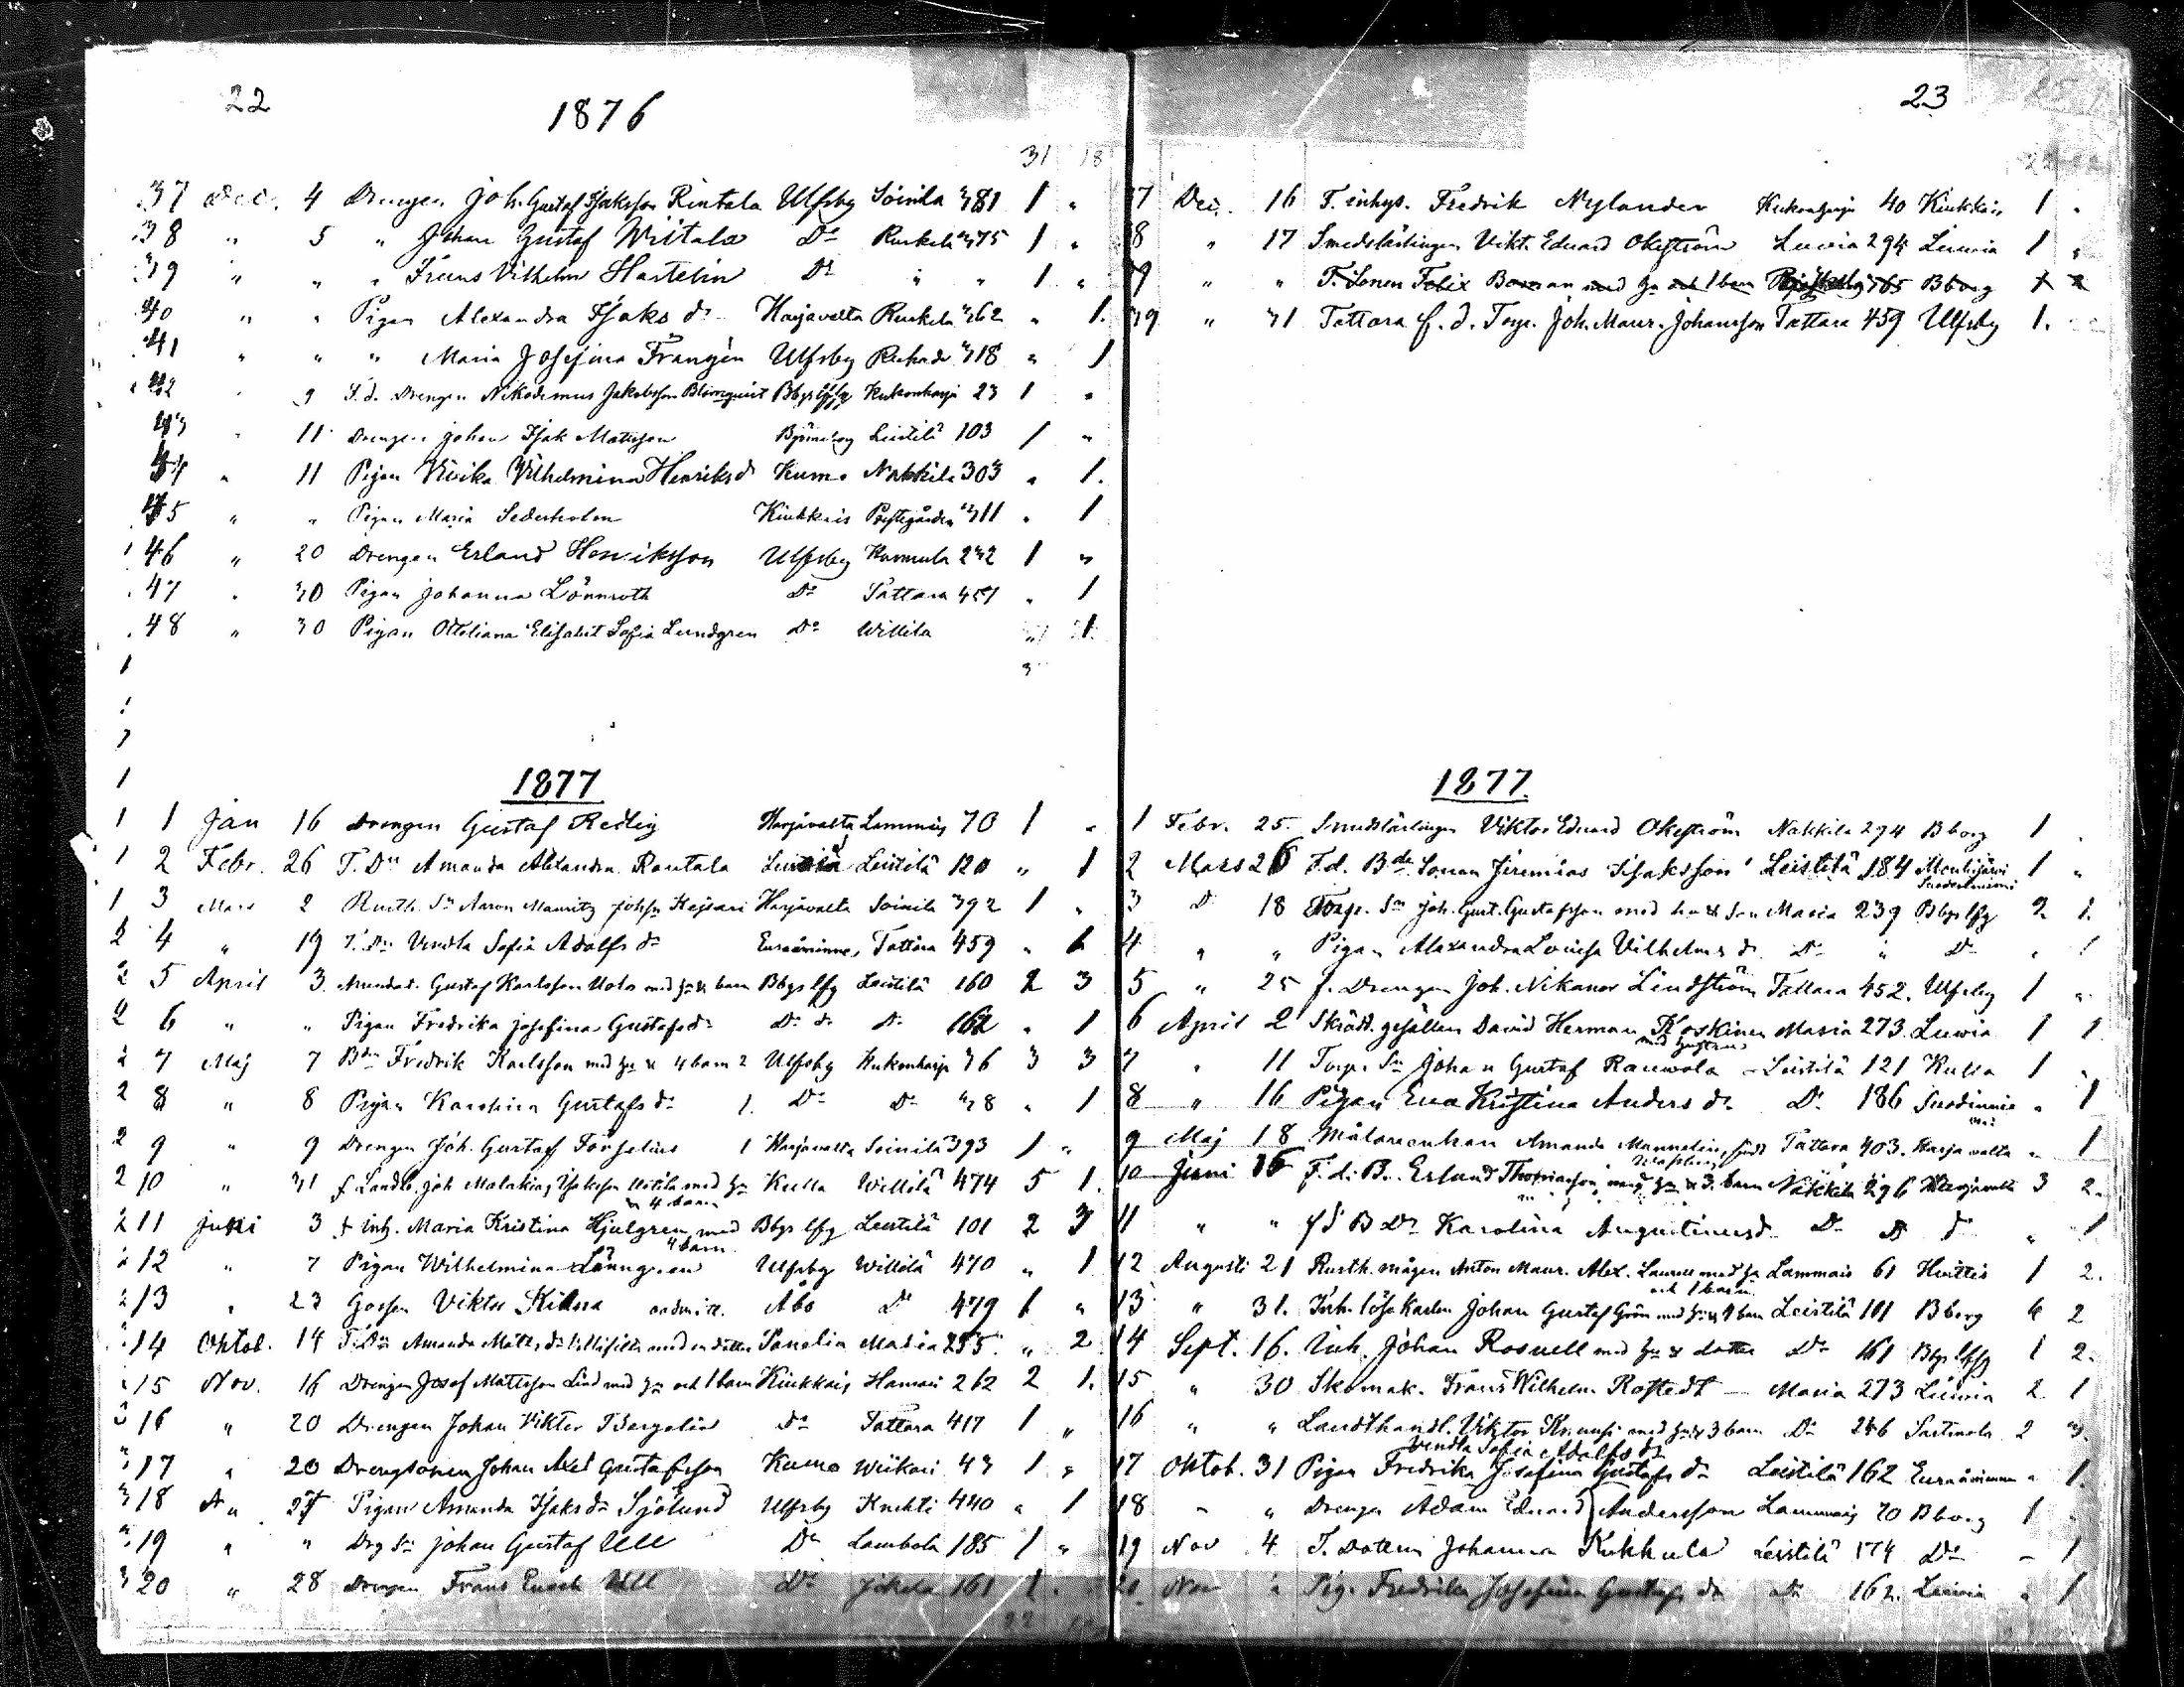 22
1876
31 18
37 Dec. 4 Drengen Joh. Gustaf Isaksson Rintala Ulfsby Soinila 381 1 "
38 " 5 " Johan Gustaf Wiitala Do Ruskela 375 1 "
39 " " " Frans Vilhelm Hastelin Do " " 1 "
40 " " Pigan Alexandra Isaks dr Harjavalta Ruskela 362 " 1.
41 " " " Maria Josefina Frangén Ulfsby 318 " 1
42 " 9 T.d. Drengen Nikodemus Jakobsson Blomquist Bbgs lfsg Kukonharja 23 1 "
43 " 11 Drengen Johan Isak Matsson Björneborg Leistilä 103 1 "
44 " 11 Pigan Vivika Vilhelmina Henriksd Kumo Nakkila 303 " 1.
45 " " Pigan Maria Sederholm Kiukkais Prestegården 311 " 1
46 " 20 Drengen Erland Henriksson Ulfsby 232 1 "
47 " 30 Pigan Johanna Lönnroth Do Tattara 451 " 1
48 " 30 Pigan Ottiliana Elisabet Sofia Lundgren Do Willila 1
1877
1 Jan 16 Drengen Gustaf Redlig Harjavalta Lammais 70 1 "
2 Febr. 26 T. Dn Amanda Alexandra Rautala Leistilä 120 " 1
3 Mars 2 Rusth. Sn Aron Mauritz Johsn Keijsari Harjavalta Soinila 392 1 "
4 " 19 T. Dn Vendla Sofia Adolfs dr Euraåminne, Tattara 459 " 1
5 April 3. Gustaf Karlsson med hu & barn Bbgs lfsg Leistilä 160 2 3
6 " " Pigan Fredrika Josefina Gustafsdr Do do Do 162 " 1
7 Maj 7 Bdn Fredrik Karlsson med hu & 4 barn 2 Ulfsby Kukonharja 36 3 3
8 " 8 Pigan Karolina Gustafs dr 1. Do Do 38 " 1
9 " 9 Drengen Joh. Gustaf Forselius 1 Harjavalta Soinila 393 1 "
10 " 31 f. Landb. Joh Malakias Isaksson med hu Kulla Willilä 474 5 1.
& 4 barn
11 Juni 3 f. inh. Maria Kristina Hjulgren med Bbgs lfsg Leistilä 101 2 3
4 barn
12 " 7 Pigan Wilhelmina Lönngren Ulfsby Willilä 470 " 1
13 " 23 Gossen Viktor Åbo Do 479 1 "
14 Oktob. 14 T. Dn Amanda Matts dr med en dotter Masia 255 " 2
15 Nov. 16 Drengen Josef Mattsson Lind med hu och 1 barn Kiukkais 262 2 1.
16 " 20 Drengen Johan Viktor Bergelin do Tattara 417 1 "
17 " 20 Drengsonen Johan Axel Gustafsson Kumo Wiikari 43 1 "
18 " 27 Pigan Amanda Isaks dr Sjölund Ulfsby Knehti 440 " 1
19 " " Drg Sn Johan Gustaf Ull Do Lambola 185 1 "
20 " 28 Drengen Frans Enoch Ull Do Jokela 161 1.
23
37 Dec. 16 T. inhys. Fredrik Nylander Kukonharja 40 Kiukkais 1 "
38 " 17 Smedslärlingen Vikt. Eduard Okeström Luvia 294 Luvia 1 "
39 " " T. Sonen Felix Boman med hu och 1 barn 165 Bborg 1 2
39 " 31 Tattara f. d. Torp. Joh. Maur. Johansson Tattara 459 Ulfsby 1.
1877.
1 Febr. 25. Smedslärlingen Viktor Eduard Okeström Nakkila 294 Bborg 1 "
2 Mars 26 F.d. Bde Sonen Jeremias Isaksson Leistilä 184 Mouhijärvi 1 "
3 Do 18 Torp. Sn Joh. Gust. Gustafsson med hu & Son Masia 239 Bbgs lfsg 2 1.
4 " " Pigan Alexandra Lovisa Vilhelms dr Do " Do " 1
5 " 25 f. Drengen Joh. Nikanor Lindström Tattara 452. Ulfsby 1 "
6 April 2 Skrädd. gesällen David Herman Koskinen Masia 273. Luvia 1 1
med hustru
7 " 11 Torp. Sn Johan Gustaf Rauvola Leistilä 121 Kulla 1 "
8 " 16 Pigan Eva Kristina Anders dr Do 186 " 1
9 Maj 18 Målareenkan Amanda Mannelin, född Tattara 403. Harjavalta " 1
10 Juni 16 F. d. B. Erland Thomasson med hu & 3 barn Nakkila 296 Harjavalta 3 2.
11 " " f d B Dr Karolina Augustinusdr Do Do do " 1
12 Augusti 21 Rusth. mågen Anton Maur. Alex. Laurell med hu Lammais 61 Huittis 1 2.
och 1 barn
13 " 31. Inh. lösa karlen Johan Gustaf Grön med hu & 4 barn Leistilä 101 Bborg 4 2
14 Sept. 16. Inh. Johan Rosvell med hu & dotter Do 161 Bbgs lfsg 1 2.
15 " 30 Skomak. Frans Wilhelm Rostedt Masia 273 Luvia 2 1
16 " " Landthandl. Viktor med hu & 3 barn Do 246 Sastmola 2 3.
Vendla Sofia Adolfs dr
17 Oktob. 31 Pigan Fredrika Josefina Gustafs dr Leistilä 162 Euraåminne " 1.
18 " " Drengen Adam Eduard Andersson Lammais 70 Bborg 1 "
19 Nov 4 T. Dottern Johanna Kukkula Leistilä 174 Do " 1
20 Nov " Pig. Fredrika Josefina Gustafs dr do 162. Luvia " 1